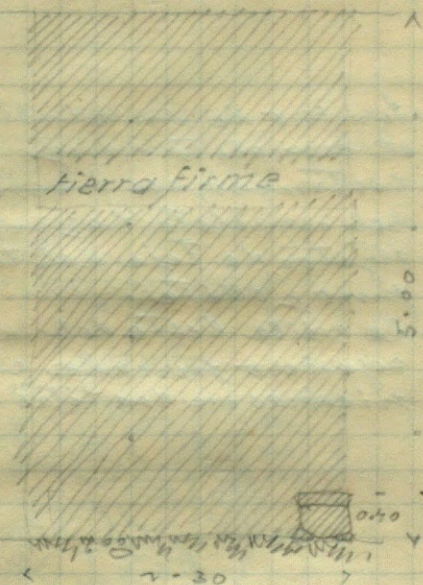 tierra firme
5.00
0.40
2-30